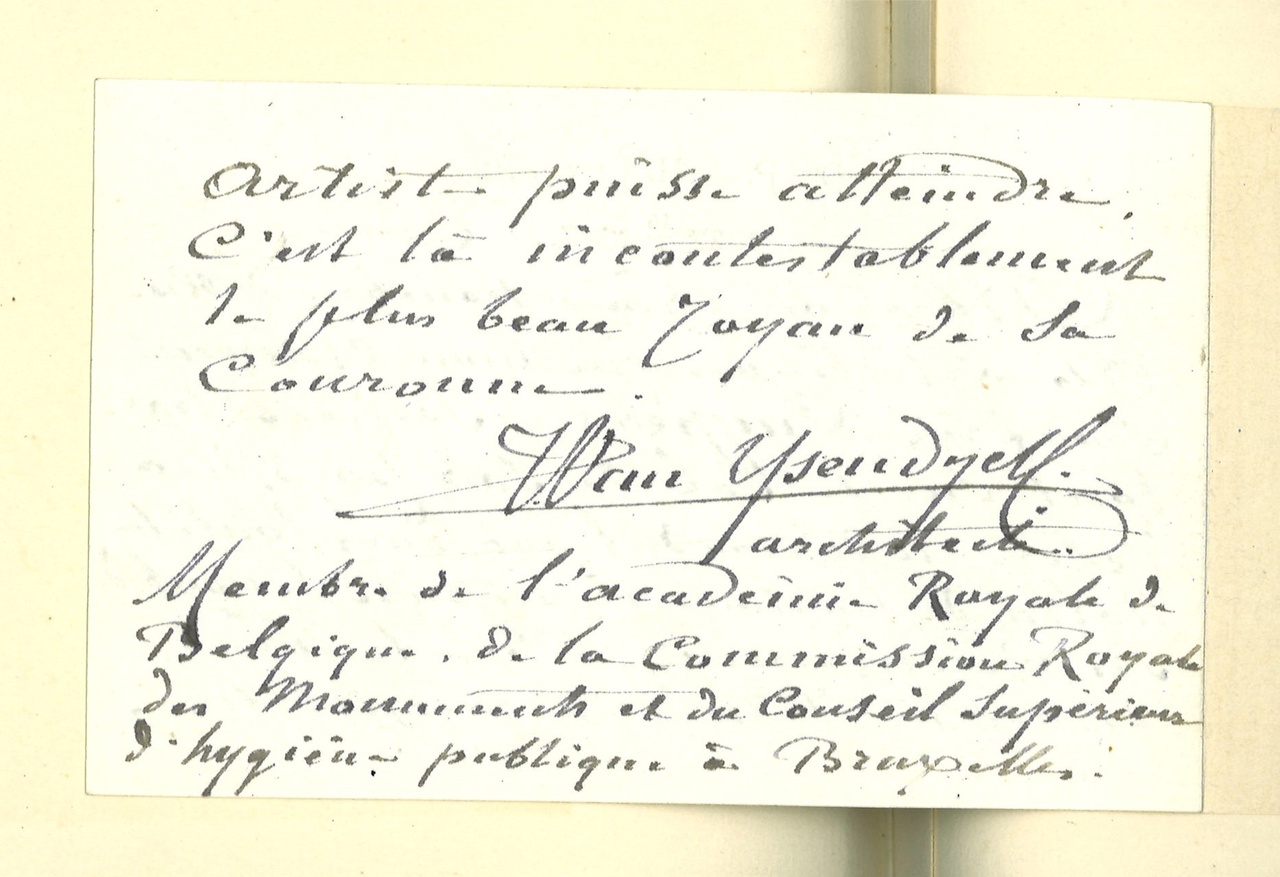 artiste puisse atteindre.
C'est là incontestablement
le plus beau Joyau de sa
Couronne.
J Van Ysendyck.
architecte.
Membre de l'académie Royale de
Belgique, de la Commission Royale
des Monuments et du Conseil Supérieur
d'hygiène publique à Bruxelles.